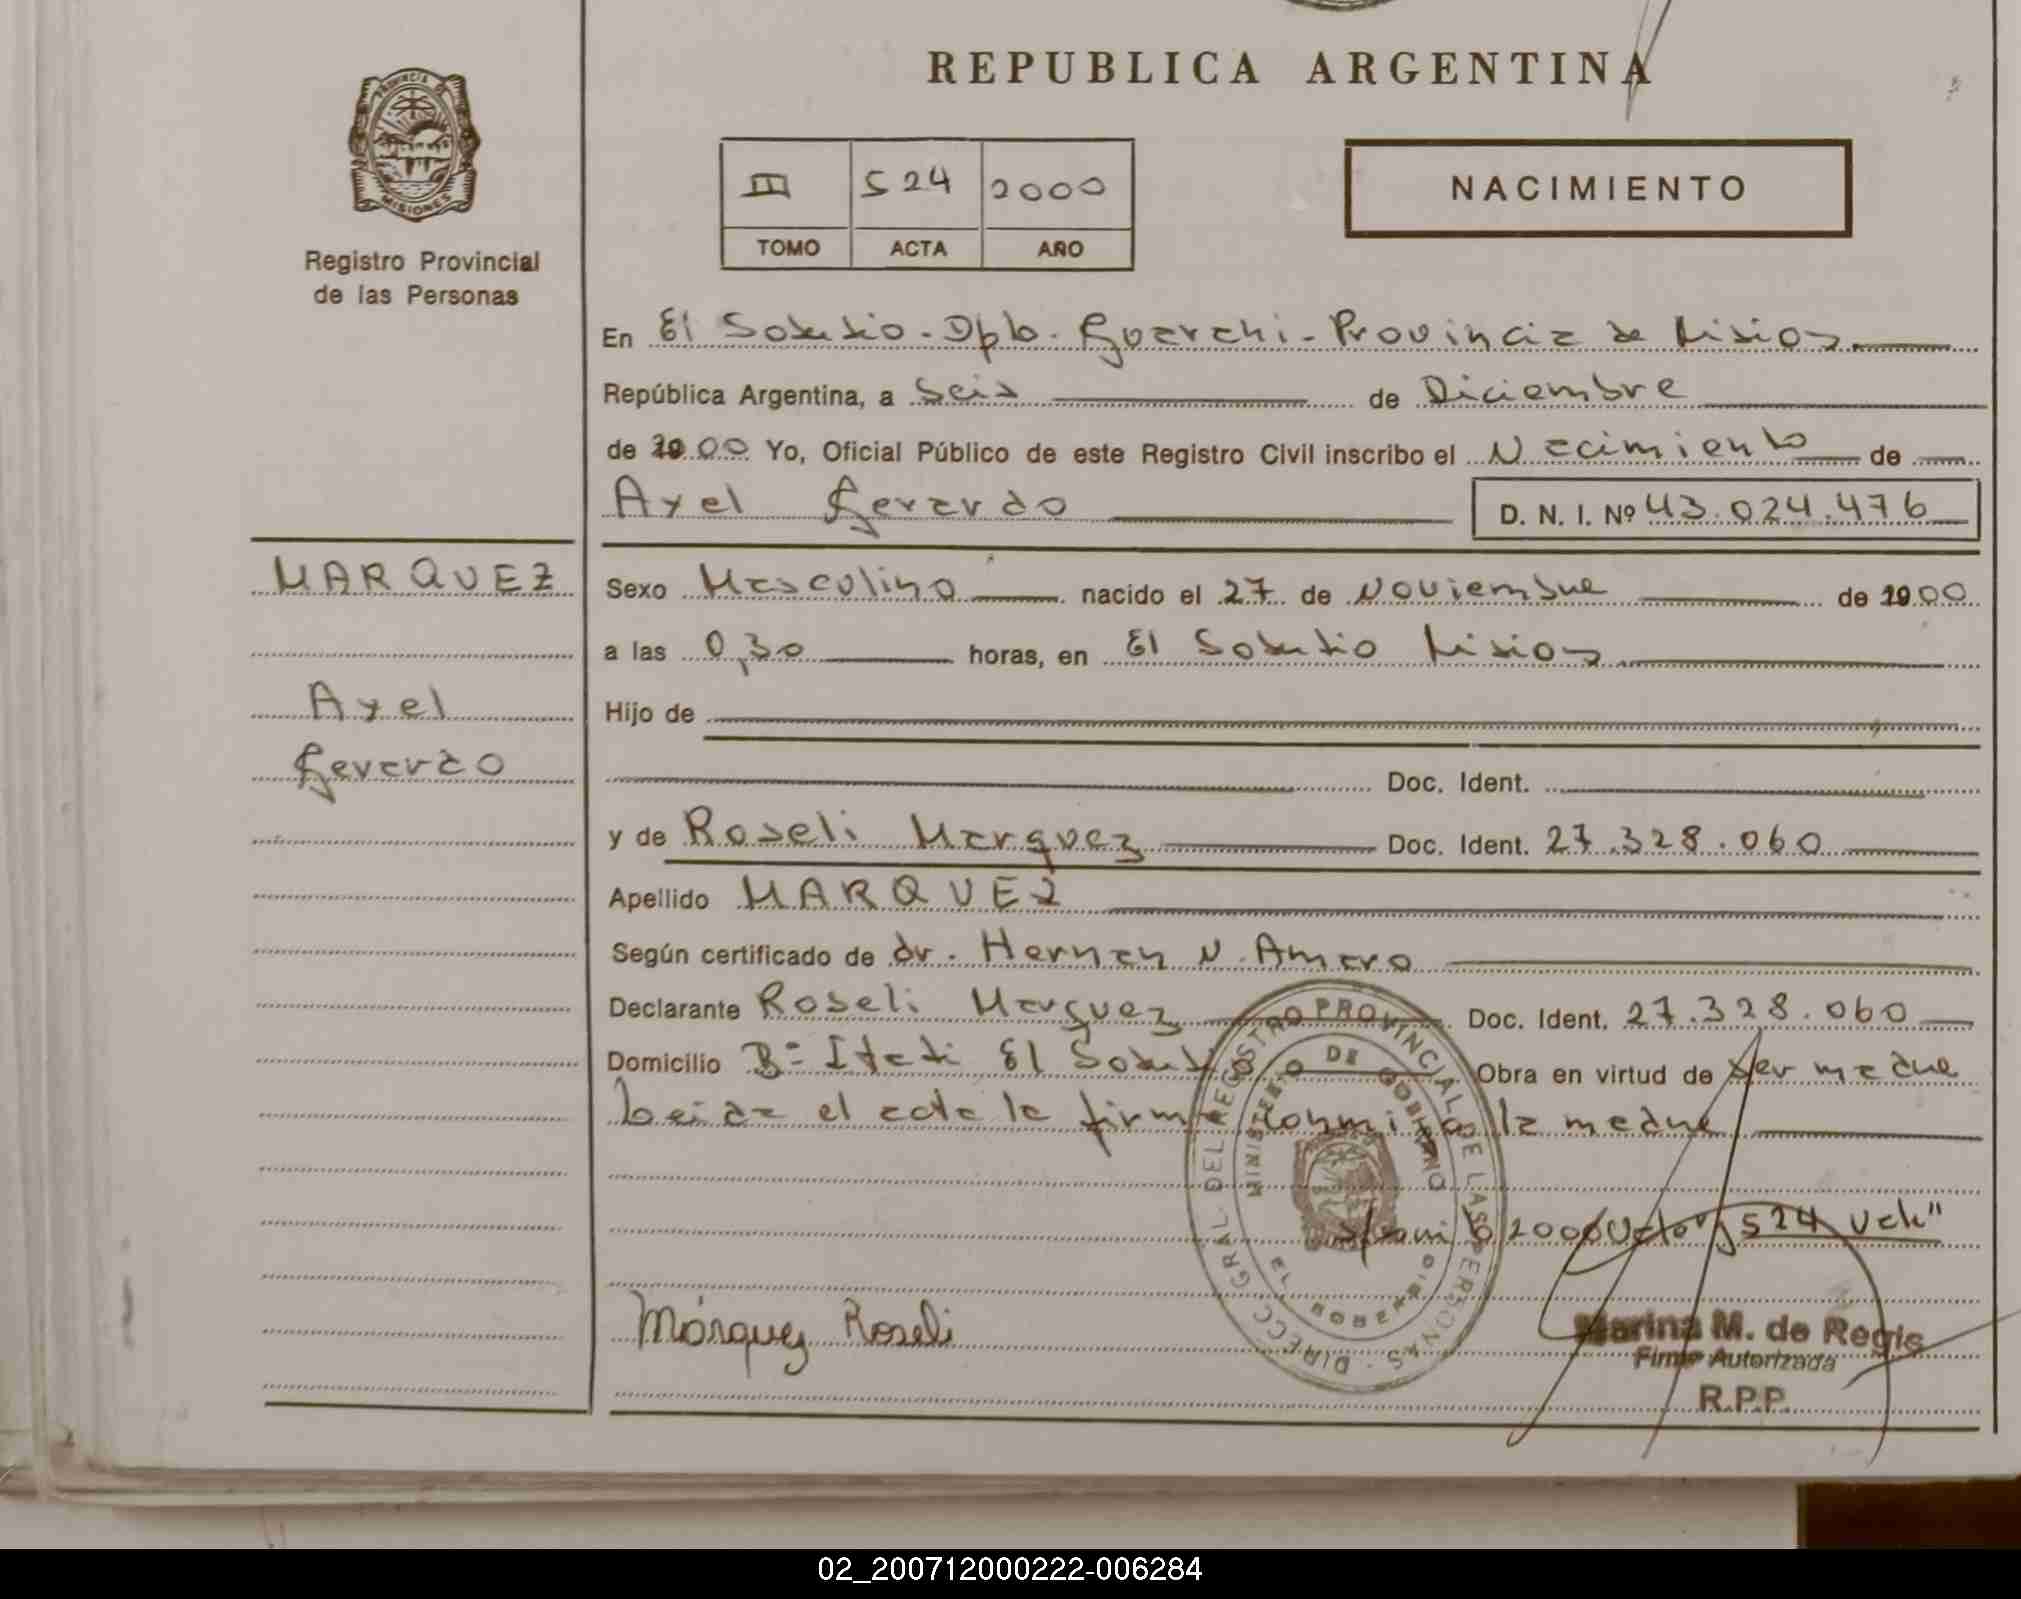 REPUBLICA ARGENTINA
PROVINCIA DE
MISIONES
Registro Provincial
de las Personas
III 524 2000
TOMO ACTA AÑO
NACIMIENTO
En El Soberbio - Dpto. Guarani - Provincia de Misiones
República Argentina, a seis de Diciembre
de 2000 Yo, Oficial Público de este Registro Civil inscribo el Nacimiento de
Axel Gerardo D. N. I. Nº 43.024.476
MARQUEZ
Axel
Gerardo
Sexo Masculino nacido el 27 de Noviembre de 2000
a las 0,30 horas, en El Soberbio Misiones
Hijo de
Doc. Ident.
y de Roseli Marquez Doc. Ident. 27.328.060
Apellido MARQUEZ
Según certificado de dr. Hernan N. Amaro
Declarante Roseli Marquez Doc. Ident. 27.328.060
Domicilio Bº Itati El Soberbio Obra en virtud de ser madre
Leida el acta la firma conmigo la madre
2000 524 Vale"
Márquez Roseli
DIRECC. GRAL. DEL REGISTRO PROVINCIAL DE LAS PERSONAS
MINISTERIO DE GOBIERNO
EL SOBERBIO
Marina M. de Regis
Firma Autorizada
R.P.P.
02_200712000222-006284